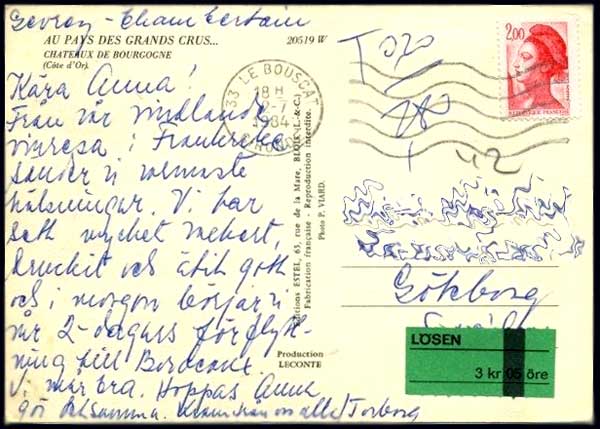 Gevrey-Chambertain
AU PAYS DES GRANDS CRUS...
20519 W
CHATEAUX DE BOURGOGNE
(Côte d'Or).
Kära Anna!
Från vår
vinresa i Frankrike
sänder vi varmaste
hälsningar. Vi har
sett mycket vackert,
druckit och ätit gott
och i morgon börjar vi
vår 2-dagars förflytt-
ning till Bordeaux.
Vi mår bra. Hoppas Anna
gör detsamma. oss alla/Torborg
Editions ESTEL, 65, rue de la Mare, BLOIS (L.-&-C.)
Fabrication française - Reproduction interdite.
Photo P. VIARD.
Production
LECONTE
33 LE BOUSCAT
18 H
2-7
1984
GIRONDE
2,00
REPUBLIQUE FRANÇAISE
T
Göteborg
LÖSEN
3 kr 05 öre